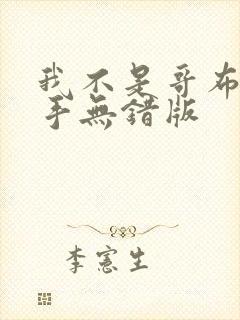 我不是哥布
手無錯版
李憲生